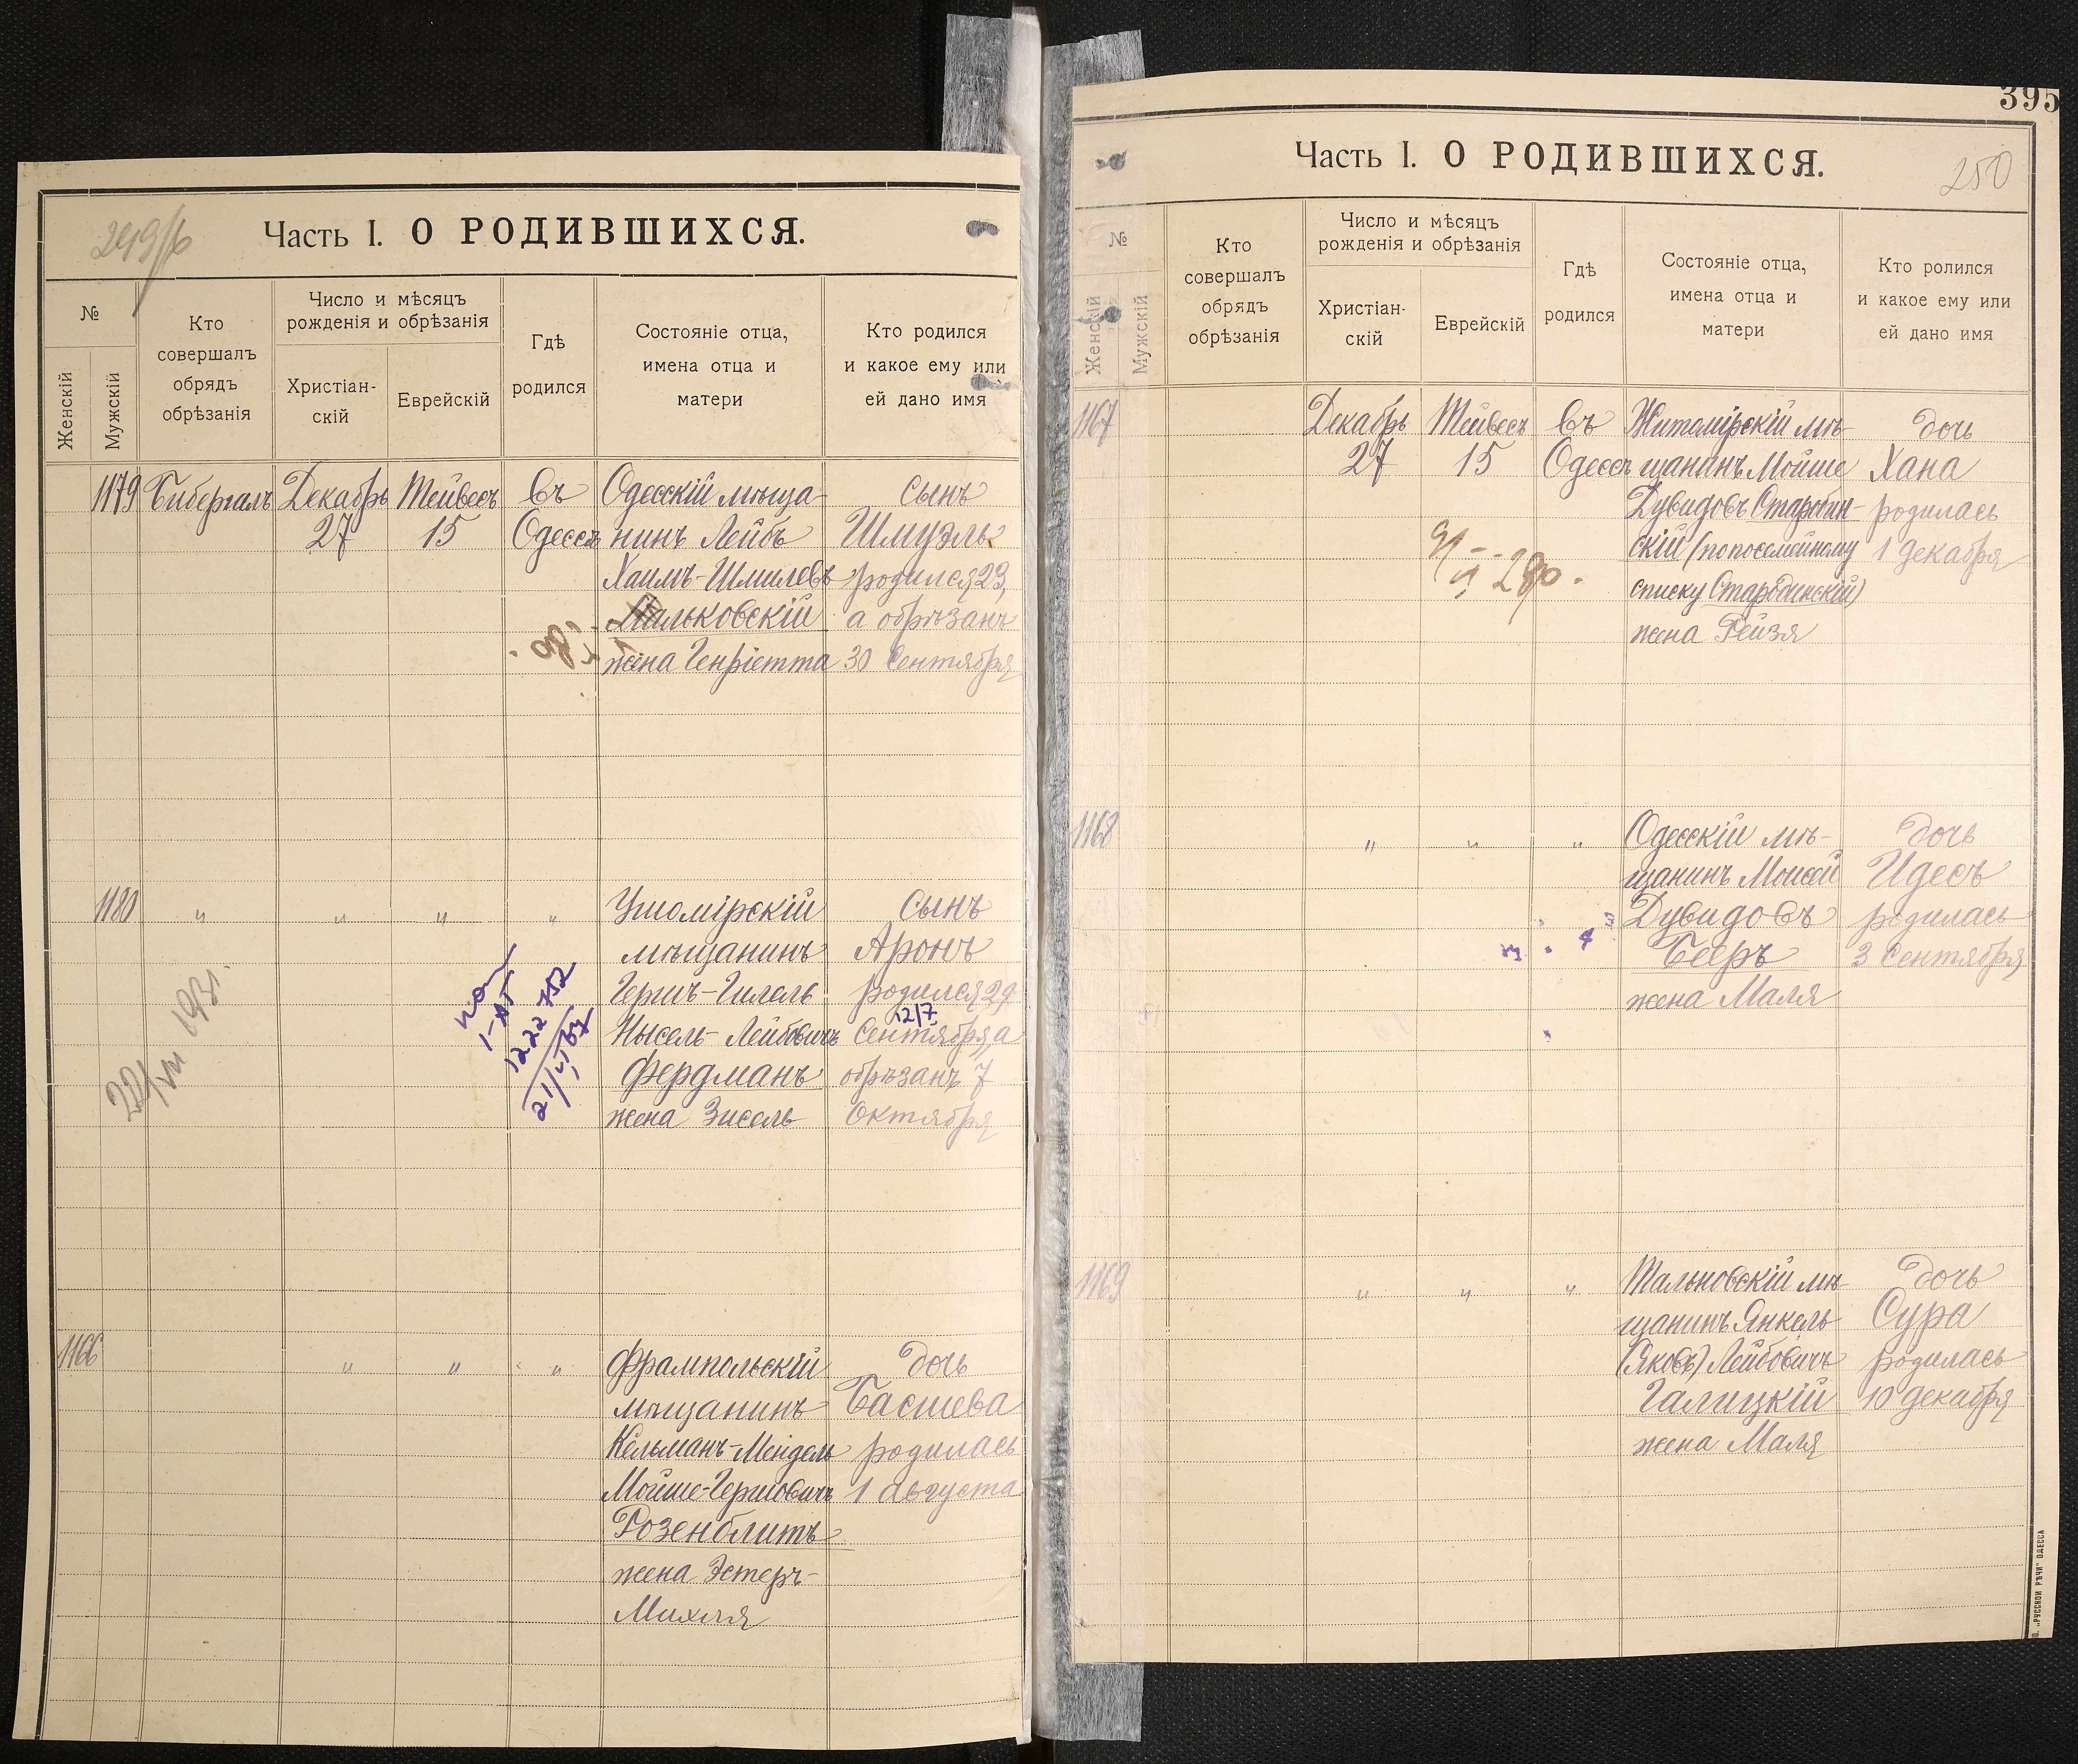 249/б
Часть I. О РОДИВШИХСЯ.
№
Женскій
Мужскій
Кто
совершалъ
обрядъ
обрѣзанія
Число и мѣсяцъ
рожденія и обрѣзанія
Христіан-
скій
Еврейскій
Гдѣ
родился
Состояніе отца,
имена отца и
матери
Кто родился
и какое ему или
ей дано имя
1179 Бибергалъ Декабрь Тейвесъ въ Одесскій мѣща- сынъ
27 15 Одессѣ нинъ Лейбъ Шмуэль
Хаимъ-Шмилевъ родился 23,
Мальковскій а обрѣзанъ
жена Генріетта 30 Сентября
1180 " " " " Ушомірскій сынъ
мѣщанинъ Аронъ
Гершъ-Гилель родился 29
12/7
Нысель-Лейбовичъ Сентября, а
Фердманъ обрѣзанъ 7
жена Зисель Октября
1222 752
22/VII 1931.
1166 " " " Фрампольскій дочь
мѣщанинъ Басшева
Кельманъ-Мендель родилась
Мойше-Гершовичъ 1 августа
Розенблитъ
жена Эстеръ-
Михля
395
250
Часть I. О РОДИВШИХСЯ.
№
Женскій
Мужскій
Кто
совершалъ
обрядъ
обрѣзанія
Число и мѣсяцъ
рожденія и обрѣзанія
Христіан-
скій
Еврейскій
Гдѣ
родился
Состояніе отца,
имена отца и
матери
Кто ролился
и какое ему или
ей дано имя
1167 Декабрь Тейвесъ въ Житомірскій мѣ- дочь
27 15 Одессѣ щанинъ Мойше Хана
Дувидовъ Старобин- родилась
скій (по посемейному 1 декабря
списку Стародинскій)
жена Рейзя
1168 " " " Одесскій мѣ- дочь
щанинъ Моисей Идесъ
Дувидовъ родилась
Бееръ 3 Сентября
жена Маля
1169 " " " Тальновскій мѣ- дочь
щанинъ Янкель Сура
(Яковъ) Лейбовичъ родилась
Галицкій 10 декабря
жена Маля
„РУССКОЙ РѢЧИ" ОДЕССА